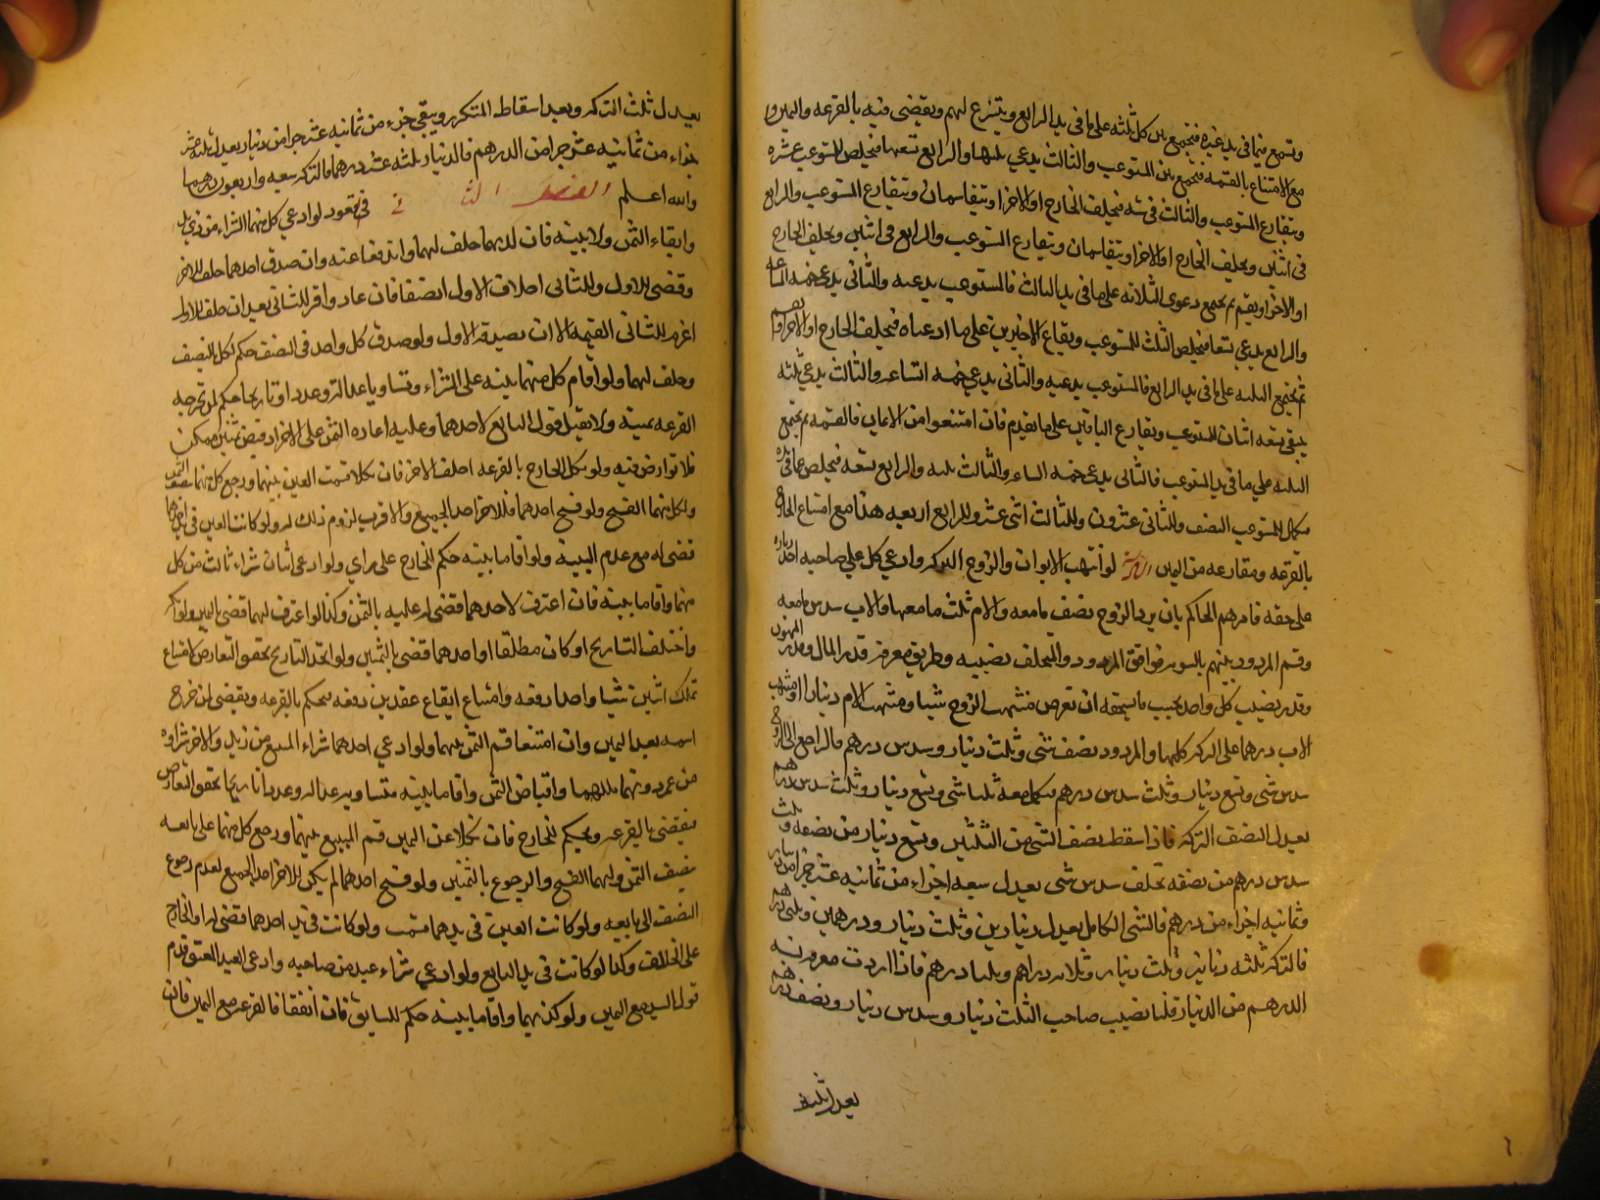 وتسمع فيما في يد غيره فيجمع بين كل ثلثه على ما في يد الرابع ويتنزع لهم ويقضى فيه بالقرعه واليمين و
مع الامتناع بالقسمه فيجمع بين المستوعب والثالث يدعي ثلثها والرابع تسعها فيخلص للمستوعب عشره
ويتقارع المستوعب والثالث في سته فيحلف الخارج او الاخر او يتقاسمان ويتقارع المستوعب والرابع
في اثنين ويحلف الخارج او الاخر او يتقاسمان ويتقارع المستوعب والرابع في اثنين ويحلف الخارج
او الاخر او يقسم ثم يجمع دعوى الثلاثه على ما في يد الثالث فالمستوعب يدعيه والثانى يدعي خمسه اتساعه
والرابع يدعي تسعا فيخلص الثلث للمستوعب ويقارع الاخيرين على ما ادعياه فيحلف الخارج او الاخر او يقسم
ثم يجتمع الثلثه على ما في يد الرابع فالمستوعب يدعيه والثانى يدعي خمسه اتساعه والثالث يدعي ثلثه
يبقى تسعه اثنان للمستوعب ويقارع الباقين على ما تقدم فان امتنعوا من الايمان فالقسمه ثم يجتمع
الثلثه على ما في يد المستوعب فالثانى يدعي خمسه اتساعه والثالث ثلثه والرابع تسعه فيخلص
فيكمل للمستوعب النصف وللثانى عشرون وللثالث اثنى عشر وللرابع اربعه هذا مع امتناع الخارج
بالقرعه ومقارعه من اليمين لو انتهب الابوان والزوج التركه وادعى كل على صاحبه اخذ زياده
على حقه فامرهم الحاكم بان يرد الزوج نصف ما معه والام ثلث ما معها والاب سدس ما معه
وقسم المردود بينهم بالسويه فوافق المردود والمتخلف نصيبه وطريق معرفه قدر المال وقدر المنهوب
وقدر نصيب كل واحد بحسب ما يستحقه ان تفرض منتهب الزوج شيئا ومنتهب الام دينارا ومنتهب
الاب درهما على التركه كلها والمردود نصف شئ وثلث دينار وسدس درهم فالراجع الى الزوج
سدس شئ وتسع دينار وثلث سدس درهم فيكمل معه ثلثا شئ وتسع دينار وثلث سدس درهم
يعدل النصف التركه فاذا اسقط نصف الشئ من الثلثين وتسع دينار من نصفه وثلث
سدس درهم من نصفه تخلف سدس شئ يعدل سبعه اجزاء من ثمانيه عشر جزءا من دينار
وثمانيه اجزاء من درهم فالشئ الكامل يعدل دينارين وثلث دينار ودرهمين وثلثى درهم
فالتركه ثلثه دنانير وثلث دينار وثلاثه دراهم وثلثا درهم فاذا اردت معرفه نسبه
الدرهم من الدينار قلنا نصيب صاحب الثلث دينار وسدس دينار ونصف درهم
يعدل ثلث
يعدل ثلث التركه وبعد اسقاط المتكرر ويبقى جزء من ثمانيه عشر جزءا من دينار يعدل ثلثه عشر
جزء من ثمانيه عشر جزءا من الدرهم فالدينار ثلثه عشر درهما فالتركه سبعه واربعون درهما
والله اعلم الفصل الثانى في العقود لو ادعى كل منهما الشراء من ذي يد
وايفاء الثمن ولا بينه فان كذبهما حلف لهما واندفعا عنه وان صدق احدهما حلف للاخر
وقضى للاول وللثانى احلاف الاول ايضا فان عاد واقر للثانى بعد ان حلف للاول
اغرم للثانى القيمه الا ان يصدقه الاول ولو صدق كل واحد في النصف حكم لكل بالنصف
وحلف لهما ولو اقام كل منهما بينه على الشراء وتساويا عداله وعددا وتاريخا حكم لمن تخرجه
القرعه بيمينه ولا تقبل قول البائع لاحدهما وعليه اعاده الثمن على الاخر اذ قبض ثمنين ممكن
فلا تعارض فيه ولو نكل الخارج بالقرعه احلف الاخر فان نكلا قسمت العين بينهما ورجع كل منهما بنصف الثمن
ولكل منهما الفسخ ولو فسخ احدهما فللاخر اخذ الجميع والاقرب لزوم ذلك له ولو كانت العين في يد احدهما
قضى له مع عدم البينه ولو اقاما بينه حكم للخارج على راي ولو ادعى اثنان شراء ثالث من كل
منهما واقاما بينه فان اعترف لاحدهما قضى له عليه بالثمن وكذا لو اعترف لهما قضى بالثمنين ولو انكر
واختلف التاريخ او كان مطلقا او احدهما قضى بالثمنين ولو اتحد التاريخ تحقق التعارض لامتناع
تملك اثنين شيئا واحدا دفعه وامتناع ايقاع عقدين دفعه فيحكم بالقرعه ويقضى لمن خرج
اسمه بعد اليمين وان امتنعا قسم الثمن بينهما ولو ادعى احدهما شراء المبيع من زيد والاخر شراءه
من عمرو وانهما ملكهما واقباض الثمن واقاما بينه متساويه عداله وعددا وتاريخا تحقق التعارض
فيقضى بالقرعه ويحكم للخارج فان نكلا عن اليمين قسم المبيع بينهما ورجع كل منهما على بائعه
بنصف الثمن ولهما الفسخ والرجوع بالثمنين ولو فسخ احدهما لم يكن للاخر اخذ الجميع لعدم رجوع
النصف الى بايعه ولو كانت العين في يدهما قسمت ولو كانت في يد احدهما قضى له او للخارج
على الخلاف وكذا لو كانت في يد البائع ولو ادعى شراء عبد من صاحبه وادعى العبد العتق قدم
قول السيد مع اليمين ولو كذبهما واقاما بينه حكم للسابق فان اتفقا فالقرعه مع اليمين فان